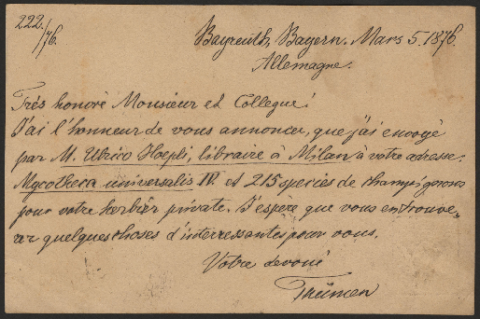 222./76.
Beyreuth, Bayern. Mars 5. 1876.
Allemagne.
Trés honoré Monsieur et Collegue!
J'ai l'honneur de vous annoncer, que j'ai envoyé
par M. Ulrico Hoepli, libraire à Milan à votre adresse
Mycotheca universalis IV. et 215 species de champignons
pour votre herbier private. J'espére que vous en trouve-
rer quelques choses d'interressantes pour vous.
Votre devoué
Thümen